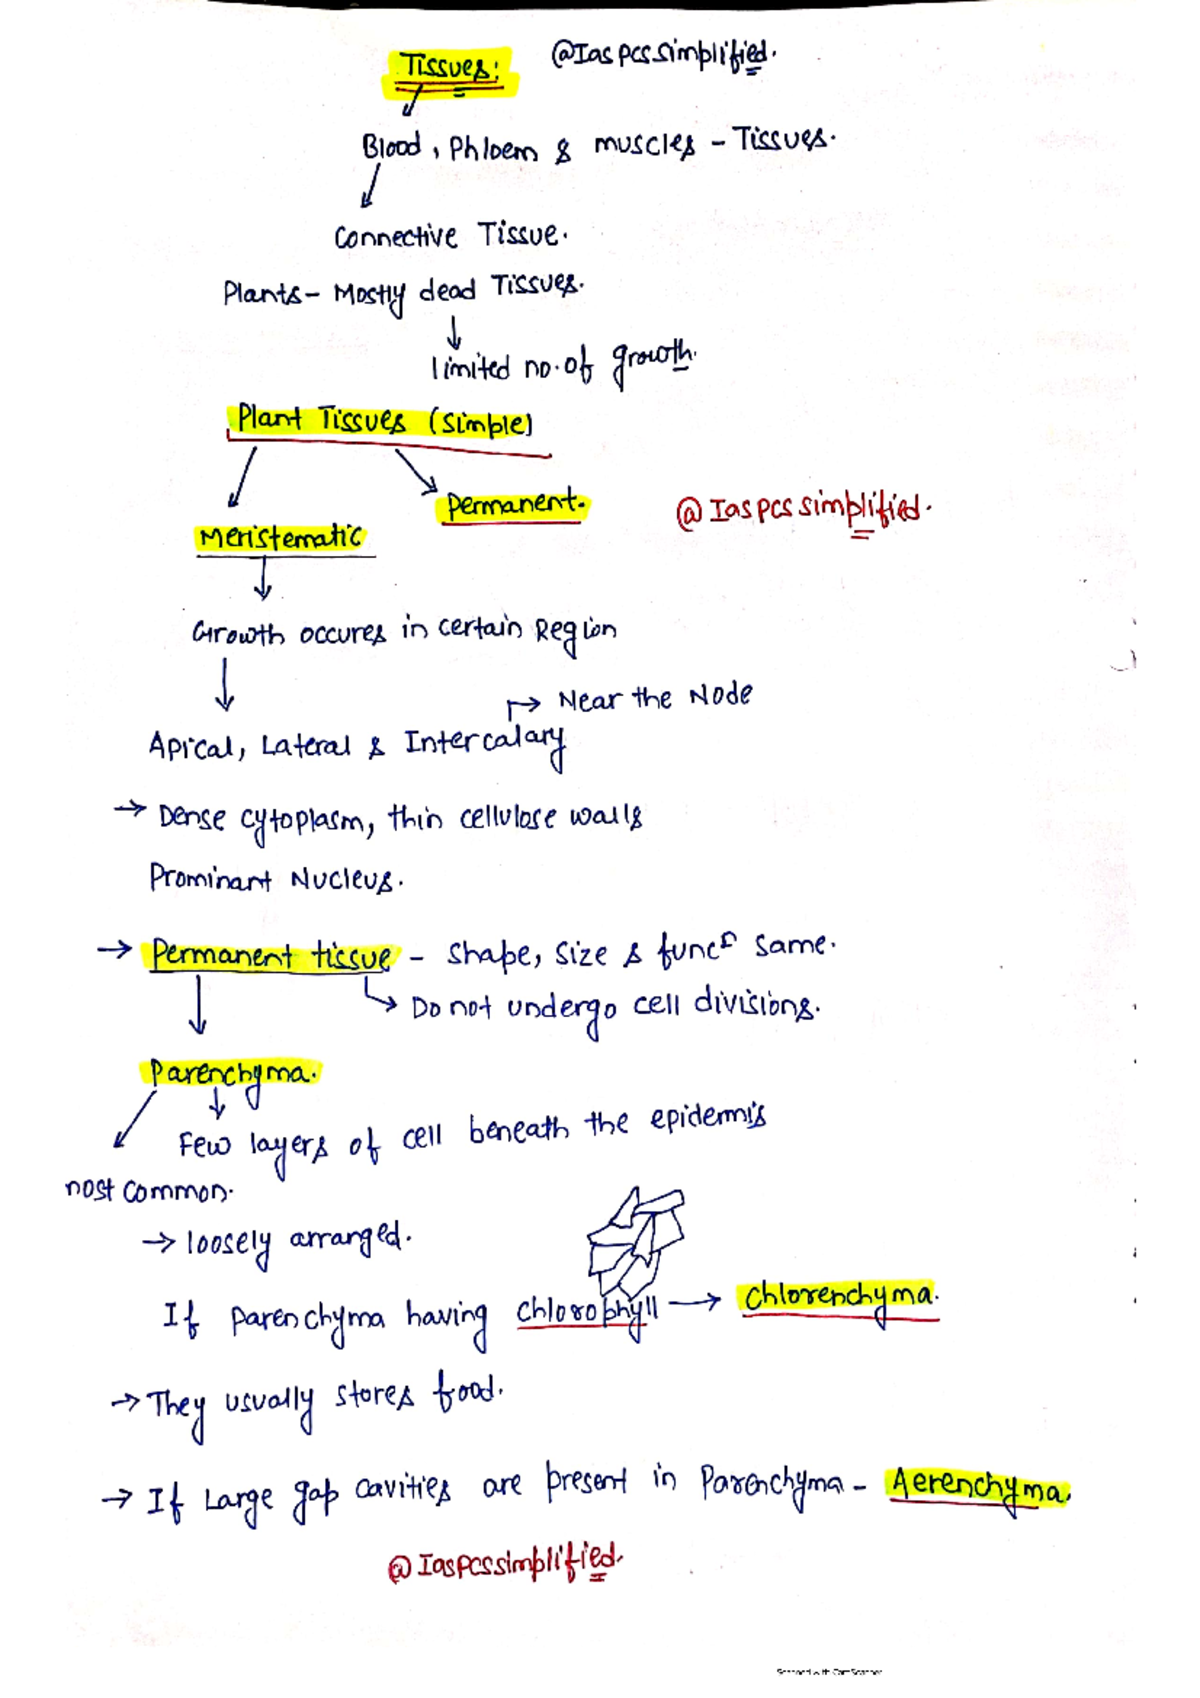 Tissues: @Iaspcssimplified.
Blood, Phloem & muscles - Tissues.
Connective Tissue.
Plants - Mostly dead Tissues.
limited no. of growth.
Plant Tissues (Simple)
Permanent.
@Iaspcssimplified.
Meristematic
Growth occures in certain Region
→ Near the Node
Apical, Lateral & Intercalary
→ Dense cytoplasm, thin cellulose walls
Prominant Nucleus.
→ Permanent tissue - shape, size & funcn same.
→ Do not undergo cell divisions.
Parenchyma.
Few layers of cell beneath the epidermis
most common.
→ loosely arranged.
If parenchyma having chlorophyll → Chlorenchyma.
→ They usually stores food.
→ If Large gap cavities are present in Parenchyma - Aerenchyma.
@Iaspcssimplified.
Scanned with CamScanner